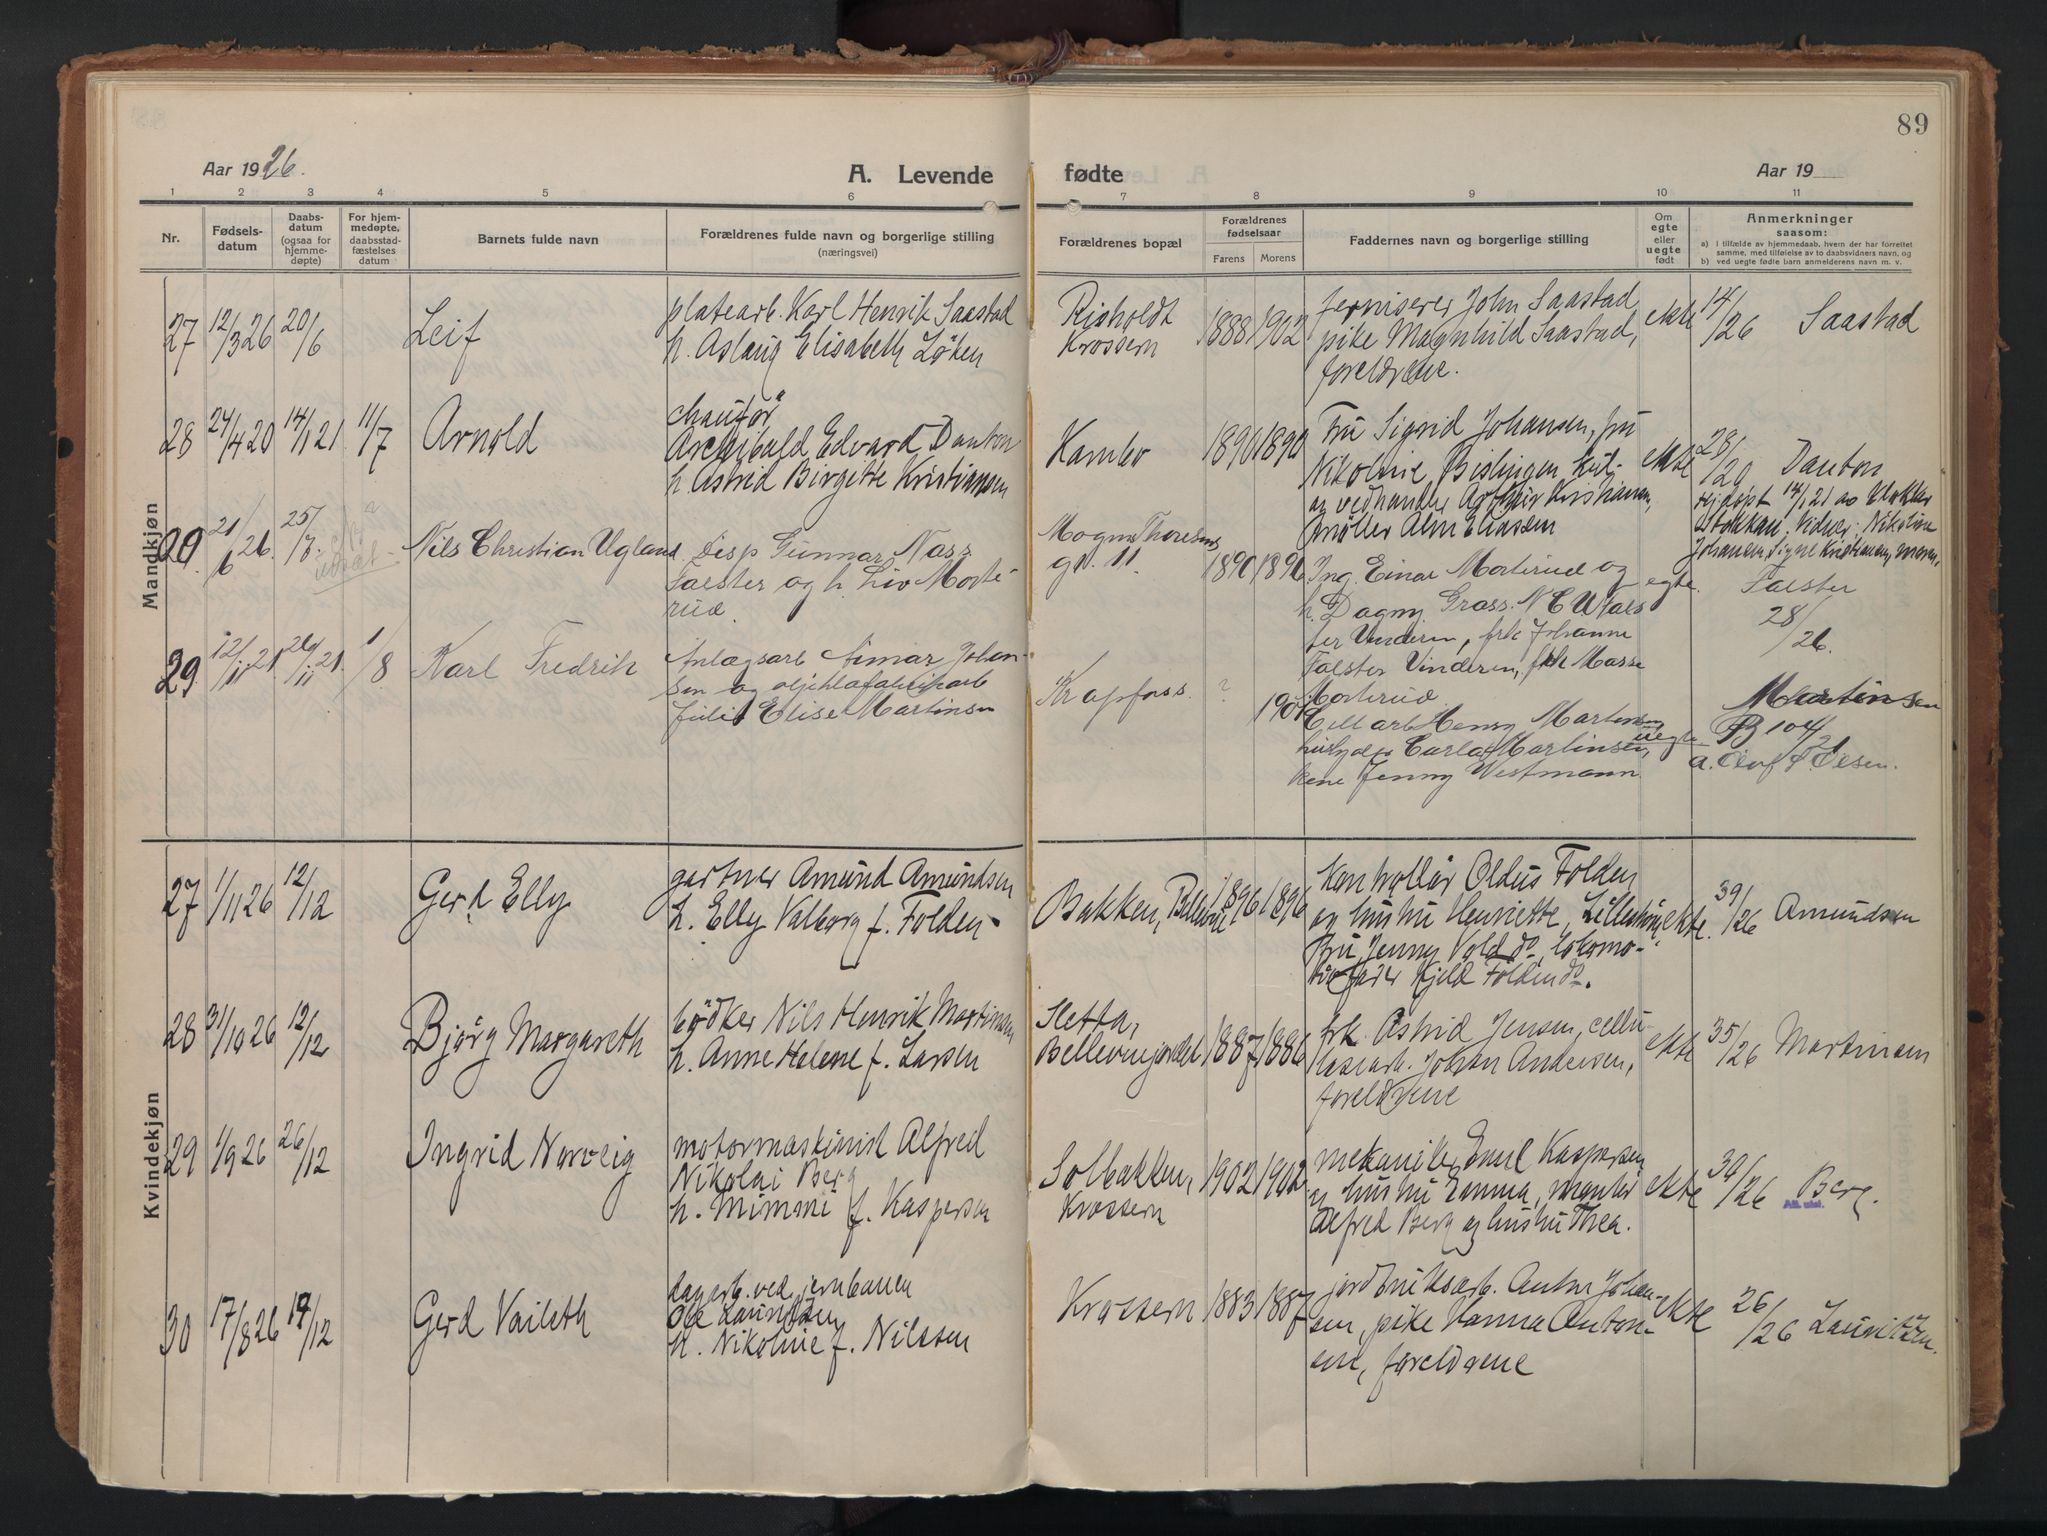 89
Aar 1926.
A. Levende fødte
Aar 19
1 2 3 4 5 6 7 8 9 10 11
Nr.
Fødsels-
datum
Daabs-
datum
(ogsaa for
hjemme-
døpte)
For hjem-
medøpte,
daabsstad-
fæstelses
datum
Barnets fulde navn
Forældrenes fulde navn og borgerlige stilling
(næringsvei)
Forældrenes bopæl
Forældrenes
fødselsaar
Farens Morens
Faddernes navn og borgerlige stilling
Om
egte
eller
uegte
født
Anmerkninger
saasom:
a) i tilfælde av hjemmedaab, hvem der har forrettet
samme, med tilføielse av to daabsvidners navn, og
b) ved uegte fødte barn anmelderens navn m. v.
Mandkjøn
27 12/3 26 20/6 Leif
platearb. Karl Henrik Saastad
h. Aslaug Elisabeth Löken
Risholdt
Krossern
1888 1902
ferniserer John Saastad
pike Magnhild Saastad,
foreldrene.
ekte 14/26 Saastad
28 24/4 20 14/1 21 11/7 Arnold
chauför
Archibald Edvard Danton
h. Astrid Birgitte Kristiansen
Kambo
1890 1890
Fru Sigrid Johansen, fru
Nikoline Bislingen kul-
og vedhandler Arthur Kristiansen,
møller Alm Eliassen
ekte 28/20 Danton
hj.døpt 14/1 21 av klokker
Stokkan. Vidner: Nikoline
Johansen, Signe Kristiansen, moren.
29. 21/6 26. 25/7. Nils Christian Ugland
Disp Gunnar Nass
Falster og h. Liv Morte-
rud.
Mogens Thoresens
gt. 11.
1890 1896
Ing. Einar Morterud og
h. Dagny Grass. N C U Fals
ter Vinderen, frk Johanne
Falster Vinderen, frk Masse
Morterud
egte. Falster
28/26.
29 12/11 21. 26/11 21. 1/8 Karl Fredrik
Anlægsarb Aimar Johan-
sen og oljeklæfabrikarb
Julie Elise Martinsen
Krapfoss. ? 1901
Cell arb Henry Martinsen
husholder Carla Martinsen,
kene Jenny Westmann
uegte
Martinsen
B 104/21
a. Olof S. Olsen.
Kvindekjøn
27 1/11 26 12/12 Gerd Elly
gartner Amund Amundsen
h. Elly Valborg f. Folden
Bakken, Bellevue 1896 1896
Kontrollör Oldus Folden
og hustru Henriette, Lilleström,
Fru Jenny Vold do, lokomo-
tivfører Kjeld Folden do.
ekte. 39/26 Amundsen
28 31/10 26 12/12 Björg Margareth
bödker Nils Henrik Martinsen
h. Anne Helene f. Larsen
Sletta,
Bellevuejordet 1887 1886
frk. Astrid Jensen, cellu-
losearb. Johan Andersen,
foreldrene
ekte 35/26 Martinsen
29 1/9 26 26/12 Ingrid Norveig
motormaskinist Alfred
Nikolai Berg
h. Mimmi f. Kaspersen
Solbakken,
Krossern
1902 1902
mekaniker Emil Kaspersen
og hustru Emma, montör
Alfred Berg og hustru Thea.
ekte 30/26 Berg.
30 17/8 26 19/12 Gerd Vaileth
dagarb. ved jernbanen
Ole Lauritzen
h. Nikoline f. Nilssen
Krossern 1883 1887
jordbruksarb. Anton Johan-
sen, pike Hanna Anton-
sen, foreldrene
ekte 26/26 Lauritzen.